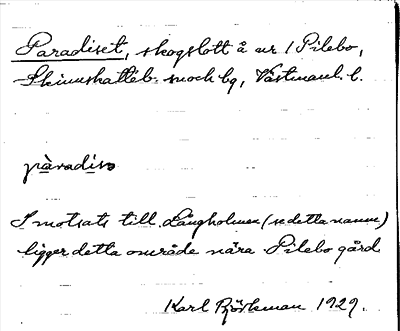 Paradiset, skogslott å nr 1 Pilebo,
Skinnskatteb. snoch bg, Västmanl. l.
pàradiso
I motsats till Långholmen (se detta namn)
ligger detta område nära Pilebo gård
Karl Björkman 1929.